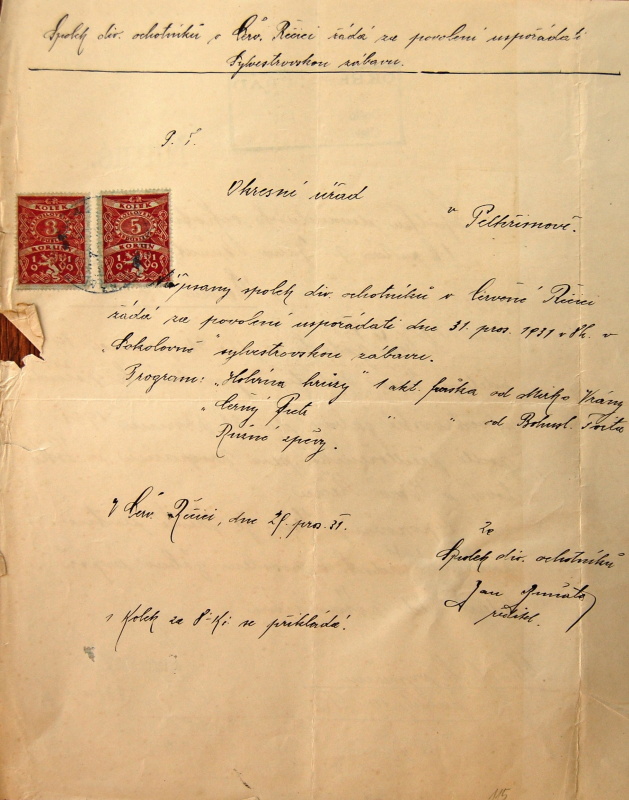 Spolek div. ochotníků v Červ. Řečici žádá za povolení uspořádati
Sylvestrovskou zábavu.
P. T.
Okresní úřad
v Pelhřimově.
KOLEK KOLEK
3 5
KORUN
1931 1931
psaný spolek div. ochotníků v Červené Řečici
žádá za povolení uspořádati dne 31. pros. 1931 v 8h. v
„Sokolovně" sylvestrovskou zábavu.
Program: „Hodina hrůzy" 1 akt. fraška od Mirko Vrány
„Černý Petr " " od Bohusl.
Různé zpěvy.
V Červ. Řečici, dne pros. 31.
Za
Spolek div. ochotníků
Jan
ředitel.
1 Kolek za 8 Kč se přikládá.
115